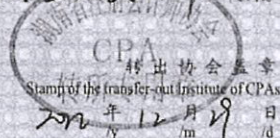 湖南省注册会计师协会
CPA
转出协会盖章
Stamp of the transfer-out Institute of CPAs
2012年12月29日
y m